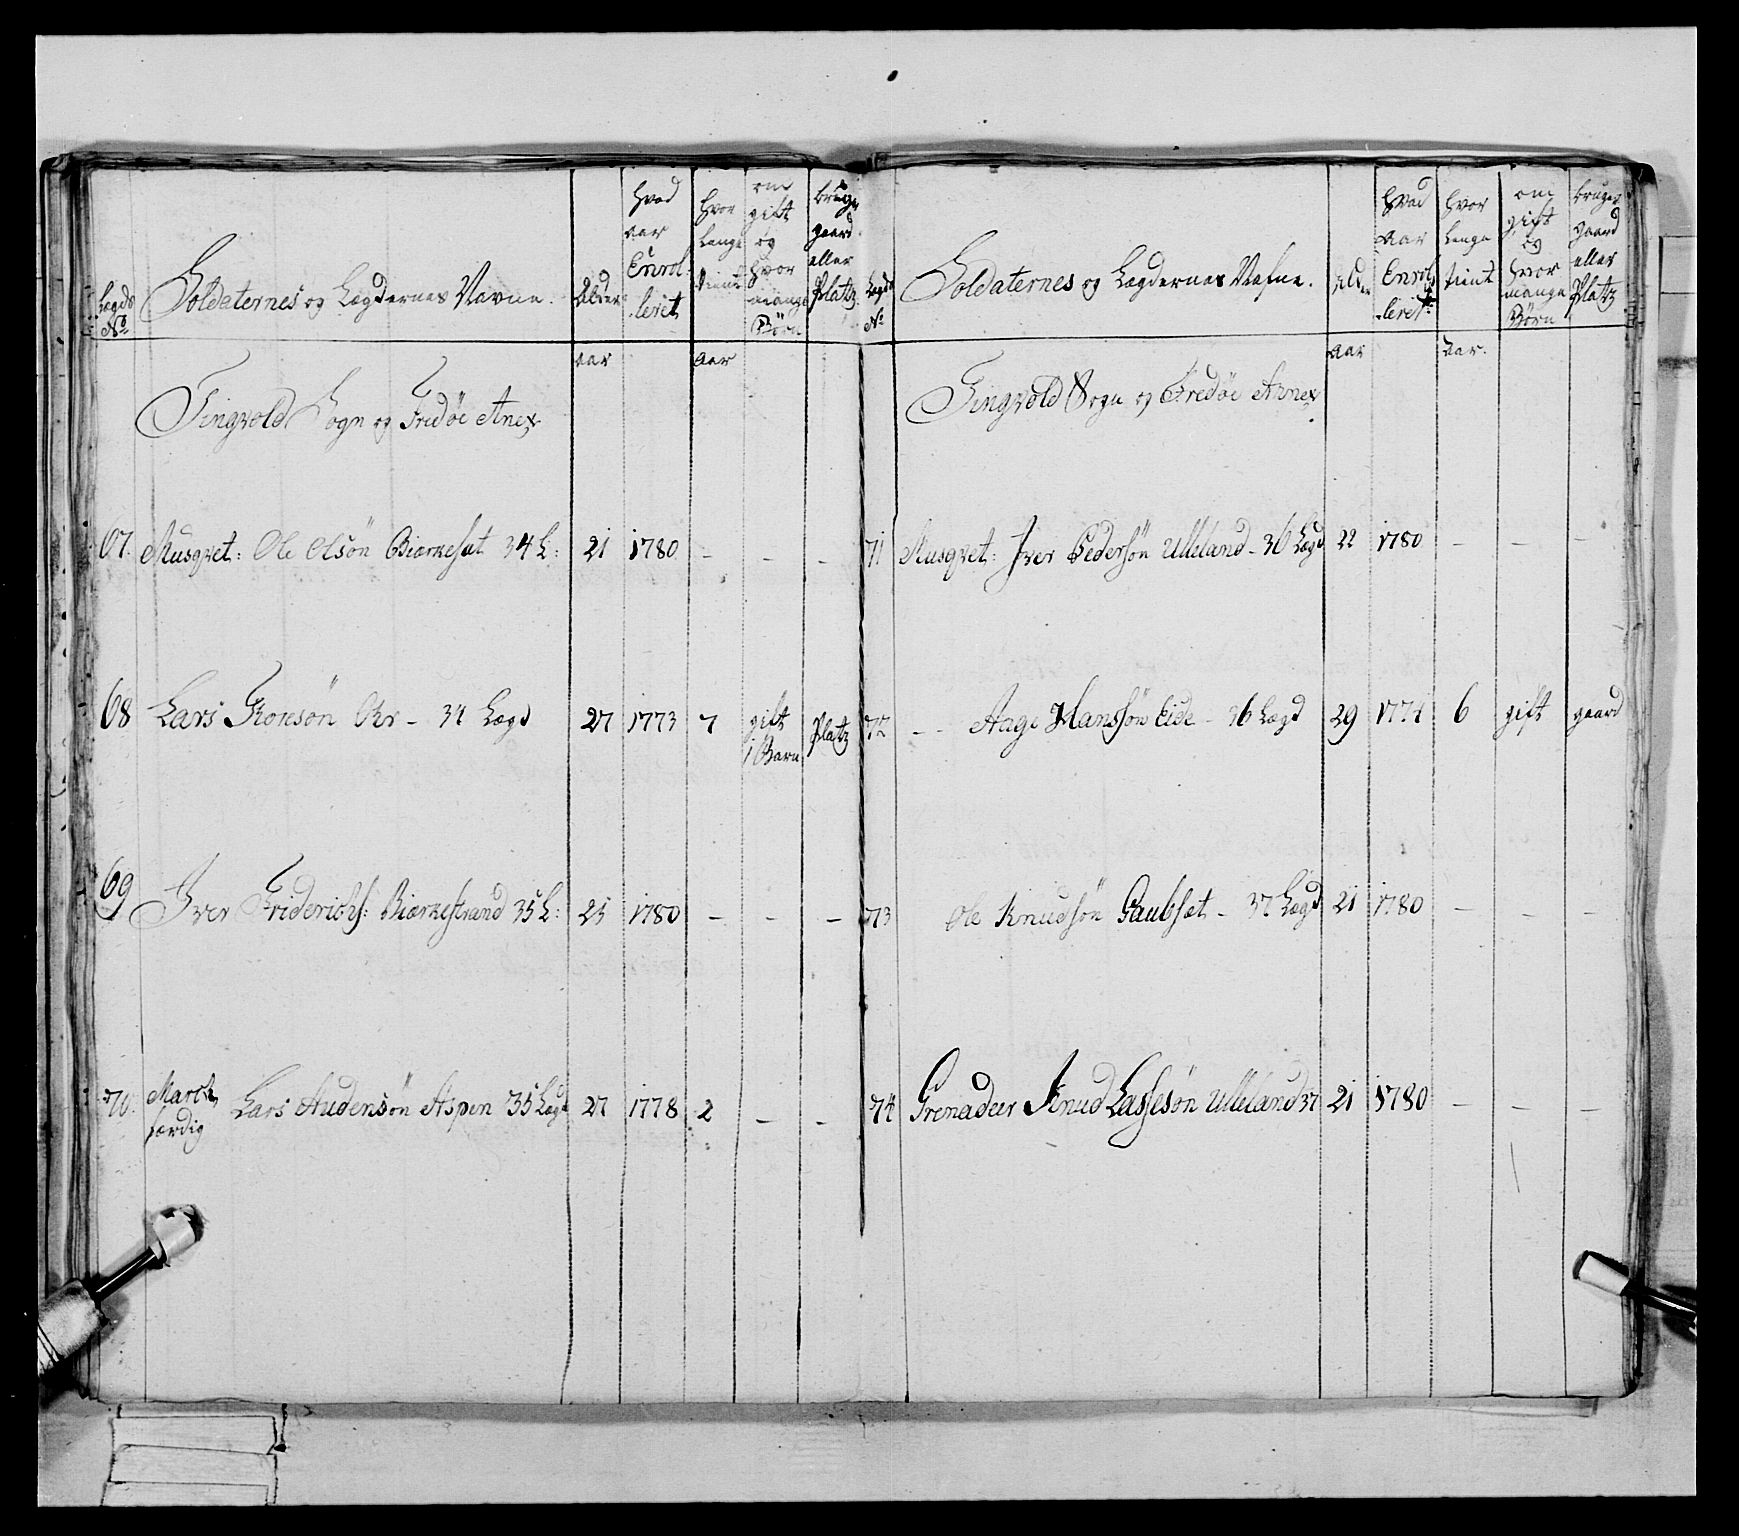 Lægds No
Soldaternes og Lægdernes Navne.
Alder
Hvad aar Enrol-leret
Hvor lenge tient
om gift og hvor mange Børn
bruger gaard eller Platz
aar
aar
Tingvold Sogn og Fredöe Anex
67. Musqvet: Ole Olsön Biørkesæt 34 L: 21 1780 - - -
68 Lars Toresön - 34 Lægd 27 1773 7 gift Platz
1 Barn
69 Iver Friderichs: Biørkestrand 35 L: 25 1780 - - -
70. March færdig Lars Andersön Aspen 35 Lægd 27 1778 2 - -
Lægds No
Soldaternes og Lægdernes Nafne.
Alder
Hvad Aar Enrol-leret
Hvor lenge tient
om gift og hvor mange Børn
bruger gaard eller Platz
aar
aar.
Tingvold Sogn og Fredöe Annex
71 Musqvet: Iver Pedersön Ulleland - 36 Lægd 22 1780 - - -
72 - - Aage Hanssön Eide - 36 Lægd 29 1774 6 gift gaard
73 Ole Knudsön Gaubsæt - 37 Lægd 21 1780 - - -
74 Grenadeer Knud Lassesön Ulleland 37 21 1780 - - -